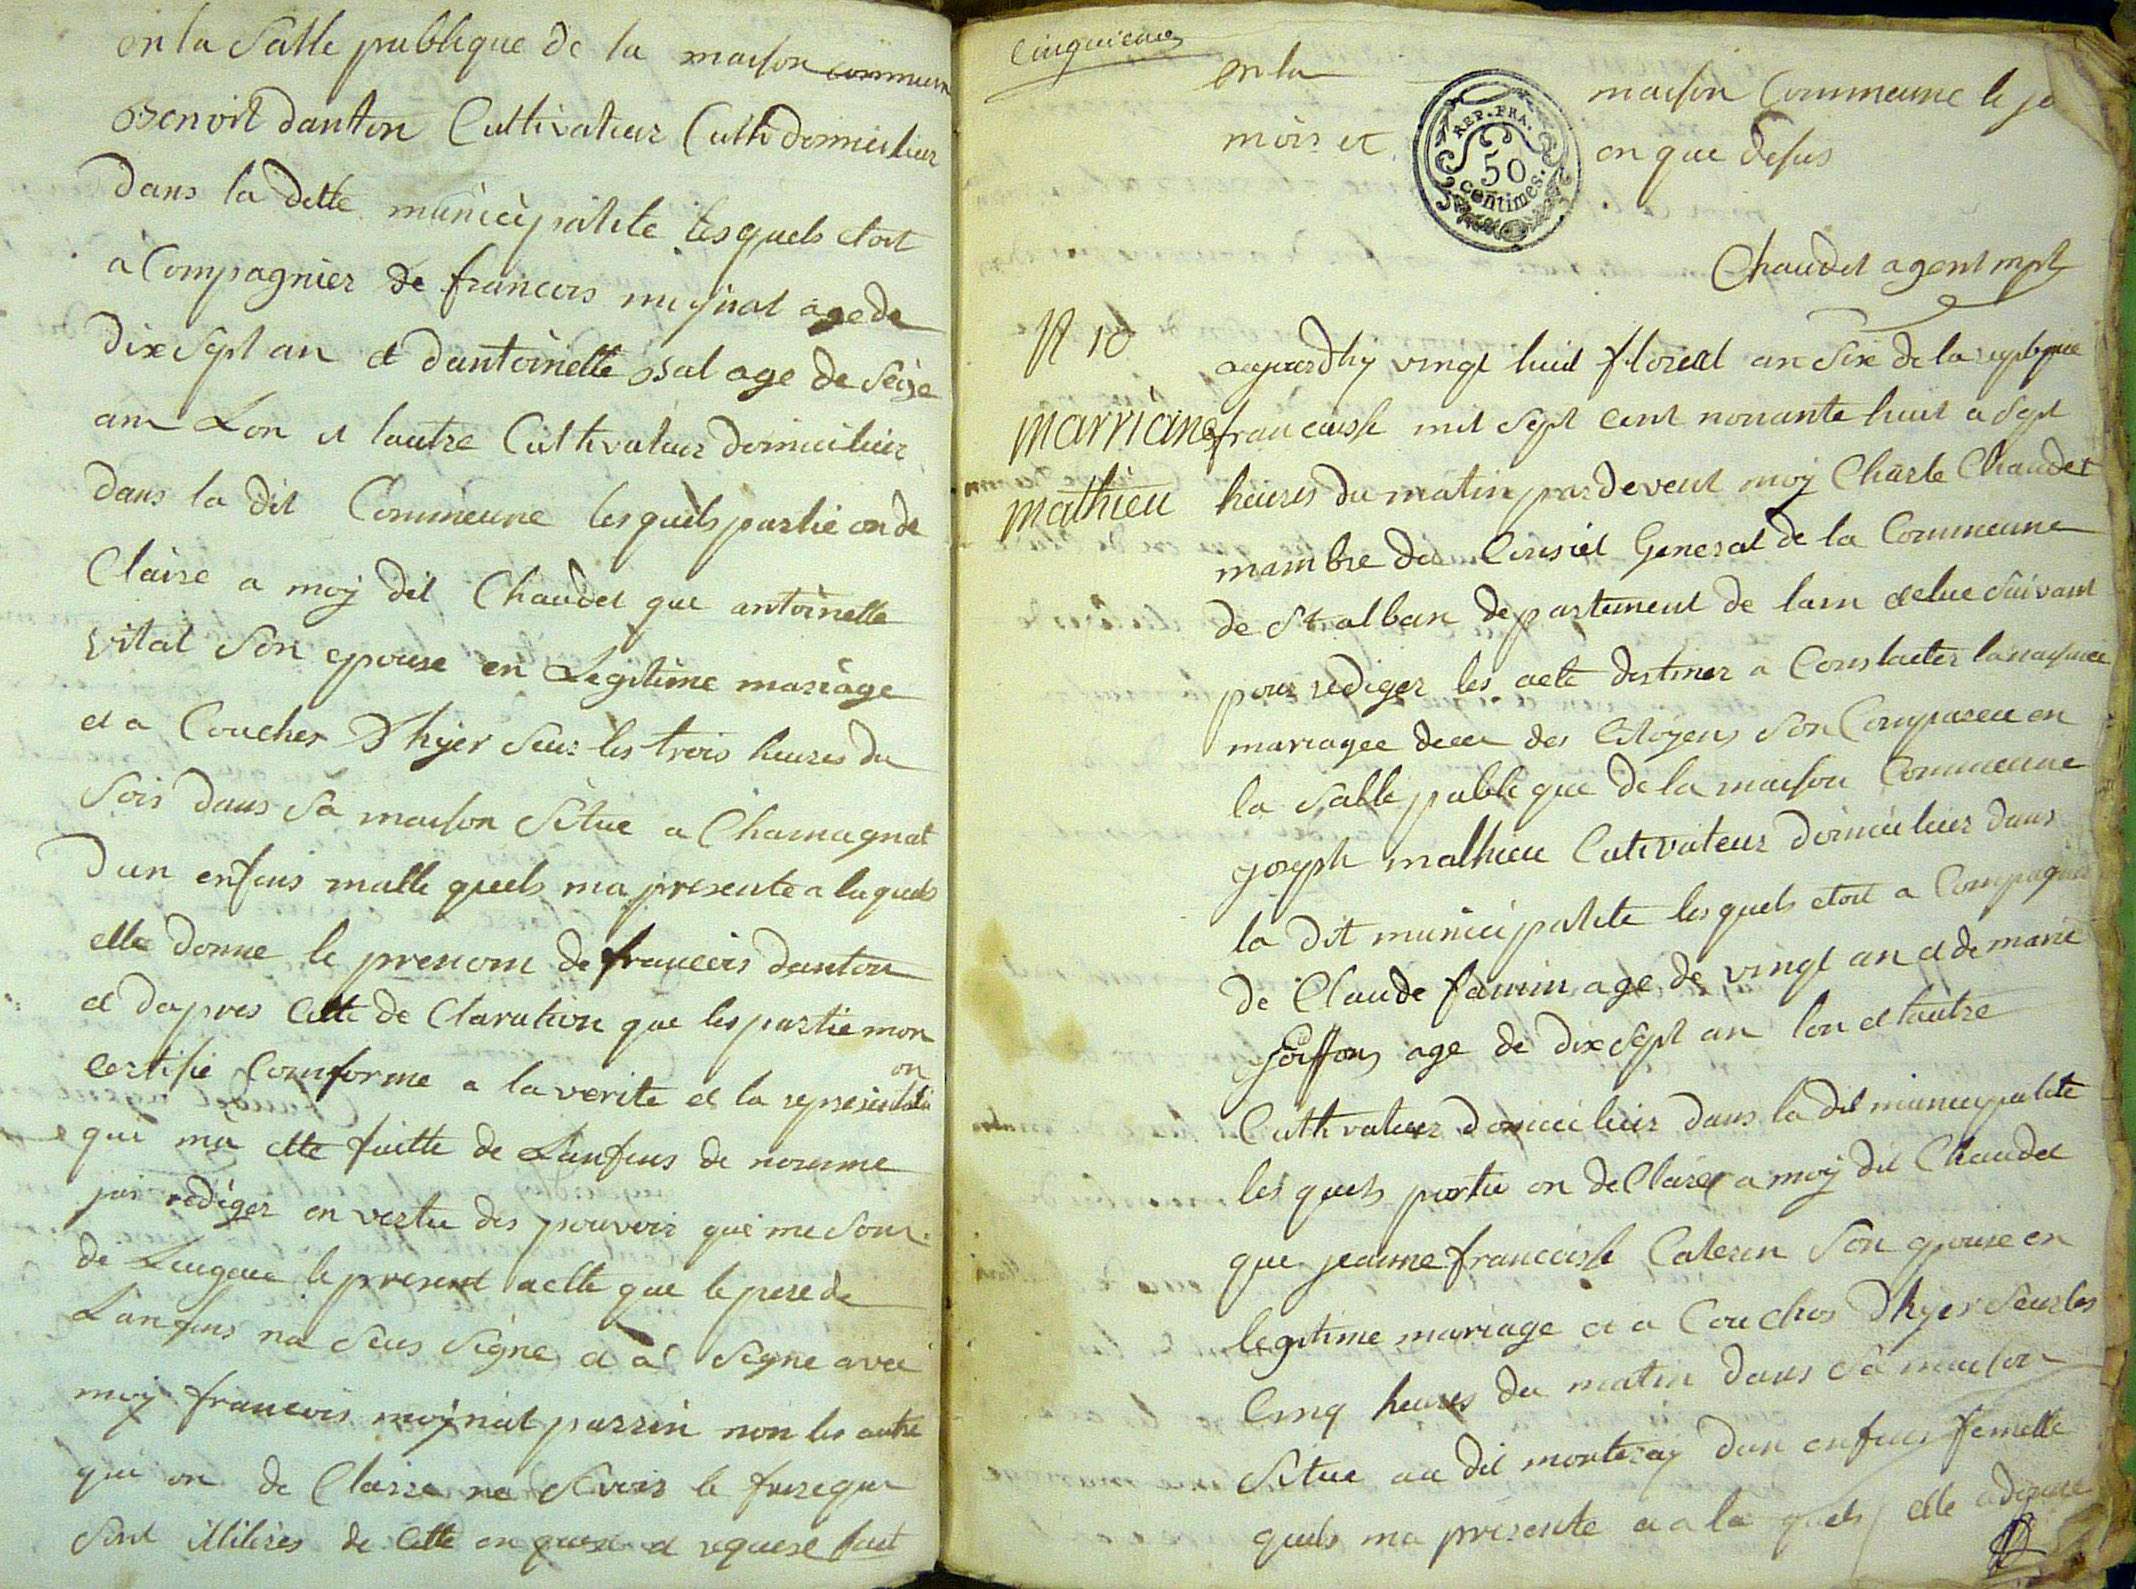 en la Salle publique de la maison commun
Benoit danton Cultivateur Culti domicilier
dans la ditte municipalite lesquels etoit
a Compagnier de francois moynat age de
dix Sept an et dantoinette Bal age de Seize
ans Lon et lautre Cultivateur domicilier
dans la dit Commeune lesquels partie on de
Claire a moy dit Chaudet que antoinette
vital Son epouse en Legitime mariage
et a Coucher Dhyer Seur les trois heures du
Soir dans Sa maison Situe a Chamagnat
Dun enfans malle quels ma presente a la quels
elle donne le prenom de francois danton
et dapres Cette de Claration que les partie mon
certifie Comforme a la verite et la representati
on
qui ma ette faitte de Lanfans de nomme
jai rediger en vertu des pouvoir que me Sont
de Leugeue le present acette que le pere de
Lanfans na Seus Signe et a Signe avec
moy francois moynat parrin non les autre
qui on de Claire ne Savoir le faire que
Sont illiteres de Cette en quere et requere fait
Cinquieme
en la maison Commeune le jo
mois et on que desus
REP. FRA.
50
centimes.
Chaudet agent mpl
N 10
marriane
mathieu
aujourdhy vingt huit floreal an Six de la republique
francaisse mil Sept cent nonante huit a Sept
heures du matin pardevent moy Charle Chaudet
mambre du Consiel General de la Commeune
de St alban departement de lain elue Suivant
pour rediger les acte destiner a Constacter la naisance
mariagee decer des Citoyens Son Compareu en
la Salle publique de la maison Commeune
joseph mathieu Cutivateur domicilier dans
la dit municipalite lesquels etoit a Compagnier
de Claude famin age de vingt an et de marie
goiffon age de dix Sept an lon et lautre
Culti vateur domicilier dans la dit municipalite
les quels partie on de Clarer a moy dit Chaudet
que jeanne francaisse Caterin Son epouse en
legitime mariage et a Couchos Dhyer Seur les
Cinq heures du matin dans Sa maison
Situe au dit monteray Dun enfans femelle
quels ma presente et a la quels elle a donne